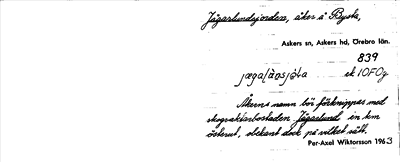 Jägarlundsjorden, åker i Rysta,
Askers sn, Askers hd, Örebro län.
839
ek 10F0g
Åkerns namn bör förknippas med
skogvaktarbostaden Jägarlund in km
österut, obekant dock på vilket sätt.
Per-Axel Wiktorsson 1963